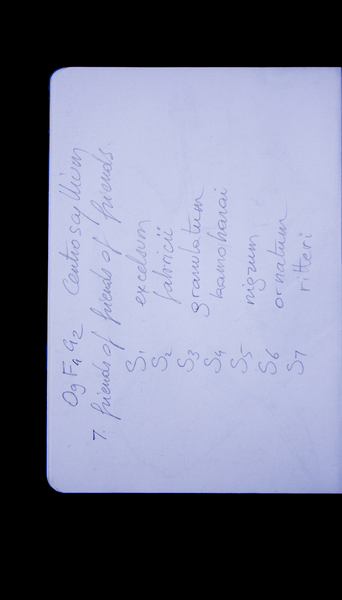 O9 F4 G2 Centroscyllium
7. friends of friends of friends
S1 excelsum
S2 fabricii
S3 granulatum
S4 kamoharai
S5 nigrum
S6 ornatum
S7 ritteri